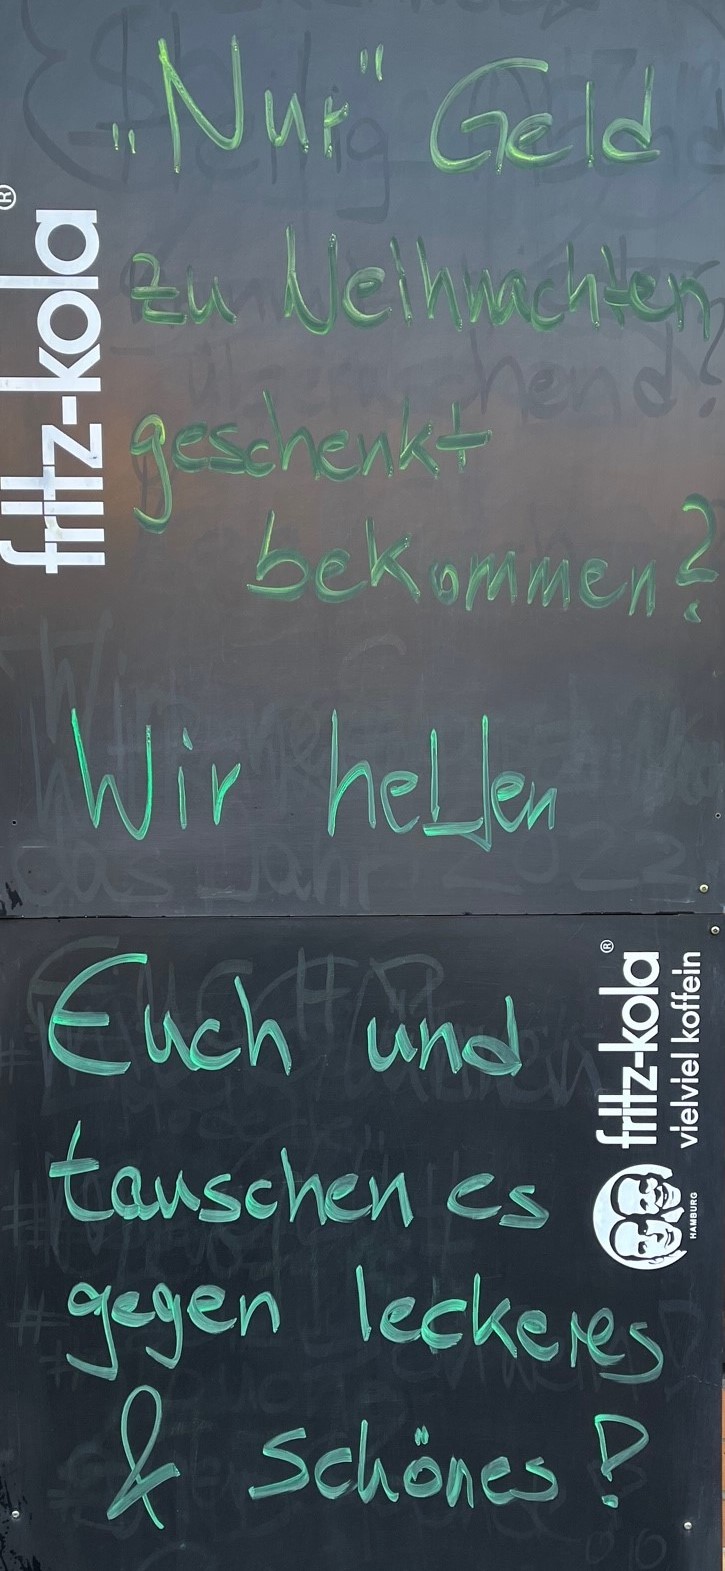 „Nur" Geld
zu Weihnachten
geschenkt
bekommen?
fritz-kola®
Wir helfen
Euch und
tauschen es
gegen leckeres
& schönes?
fritz-kola®
vielviel koffein
HAMBURG